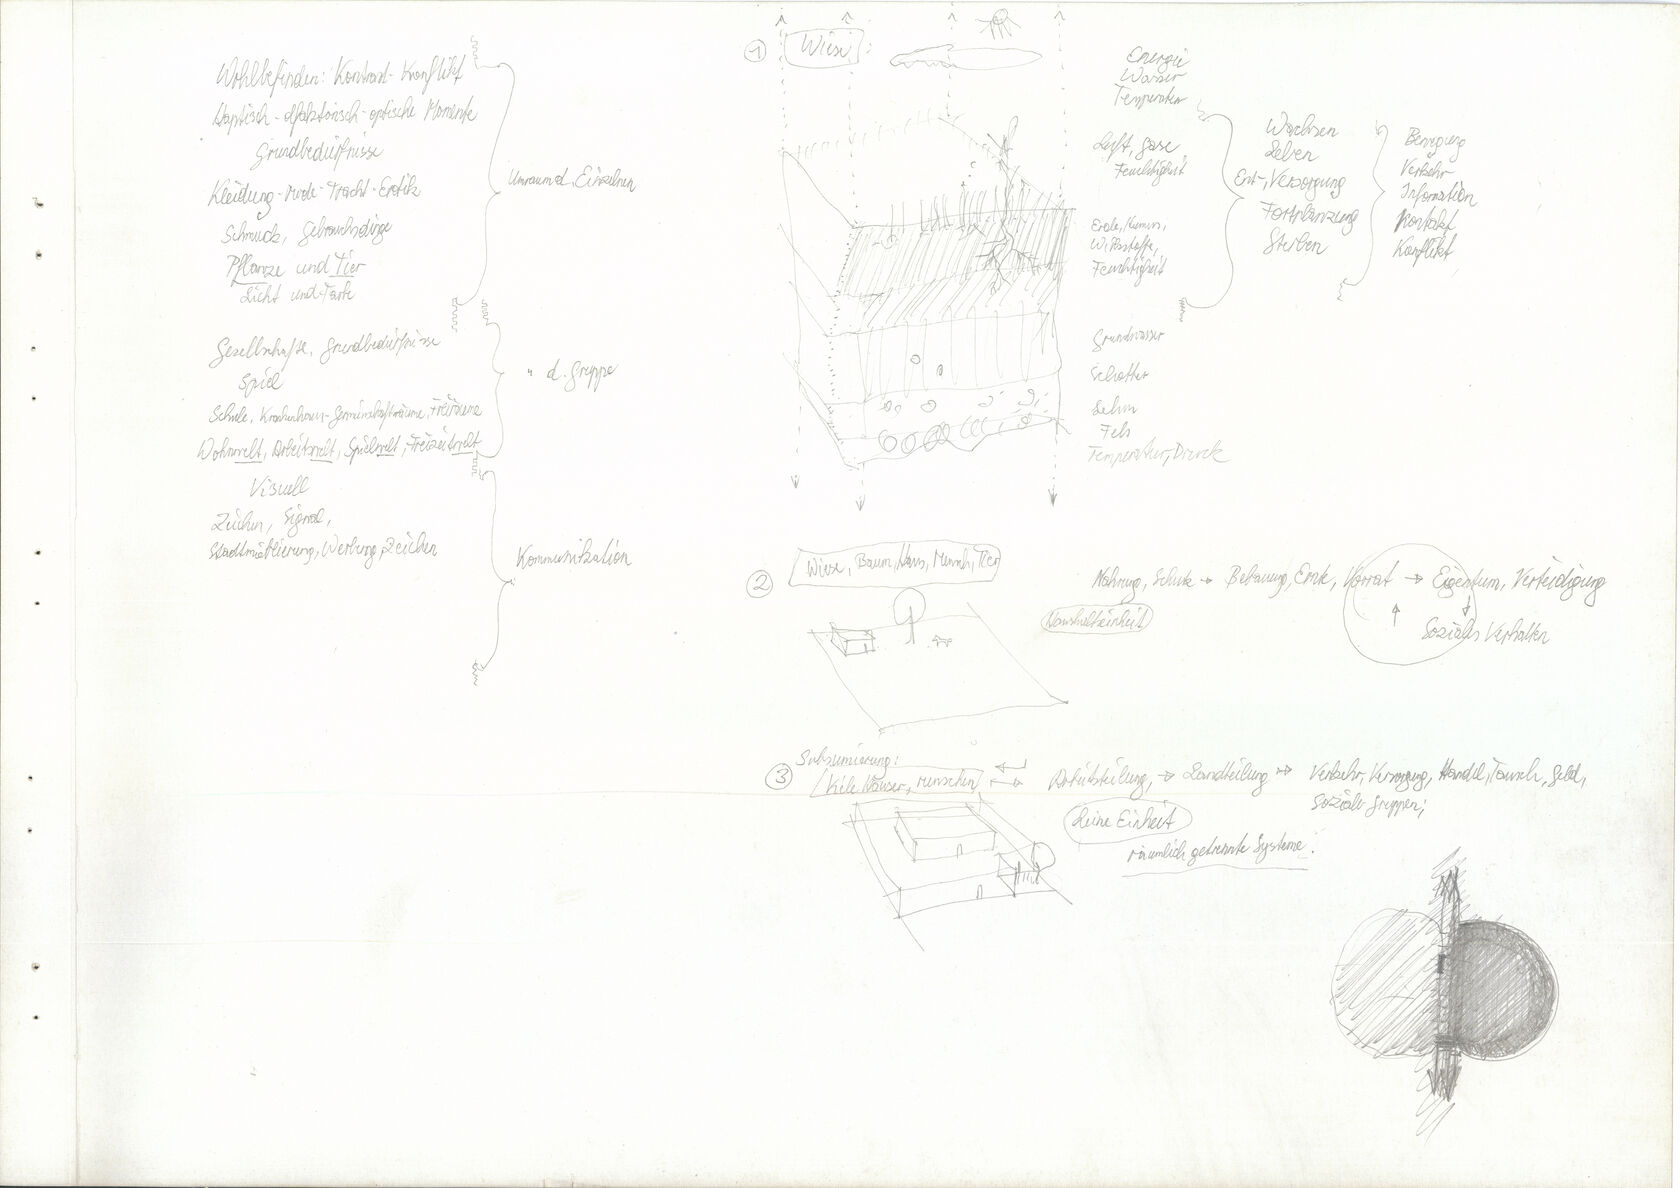 Wohlbefinden: Kontrast - Konflikt
Haptisch - olfaktorisch - optische Momente
Grundbedürfnisse
Kleidung - Mode - Tracht - Erotik
Schmuck, Gebrauchsdinge
Pflanze und Tier
Licht und Farbe
Umraum d. Einzelnen
Gesellschafts, Grundbedürfnisse
Spiel
Schule, Krankenhaus - Gemeinschaftsräume, Freiräume
Wohnwelt, Arbeitswelt, Spielwelt, Freizeitwelt
" d. Gruppe
Visuell
Zeichen, Signal,
Stadtmöblierung, Werbung, Zeichen
Kommunikation
1 Wiese:
Energie
Wasser
Temperatur
Luft, Gase
Feuchtigkeit
Erde, Humus,
Wirkstoffe,
Feuchtigkeit
Grundwasser
Schotter
Lehm
Fels
Temperatur, Druck
Wachsen
Leben
Ent-, Versorgung
Fortpflanzung
Sterben
Bewegung
Verkehr
Information
Kontakt
Konflikt
2 Wiese, Baum, Haus, Mensch, Tier
Nahrung, Schutz → Bebauung, Ernte, Vorrat → Eigentum, Verteidigung
Haushaltseinheit
Soziales Verhalten
Subsumierung:
3 Viele Häuser, Menschen
Arbeitsteilung, → Landteilung → Verkehr, Versorgung, Handel, Tausch, Geld,
Soziale Gruppen;
Keine Einheit
räumlich getrennte Systeme.